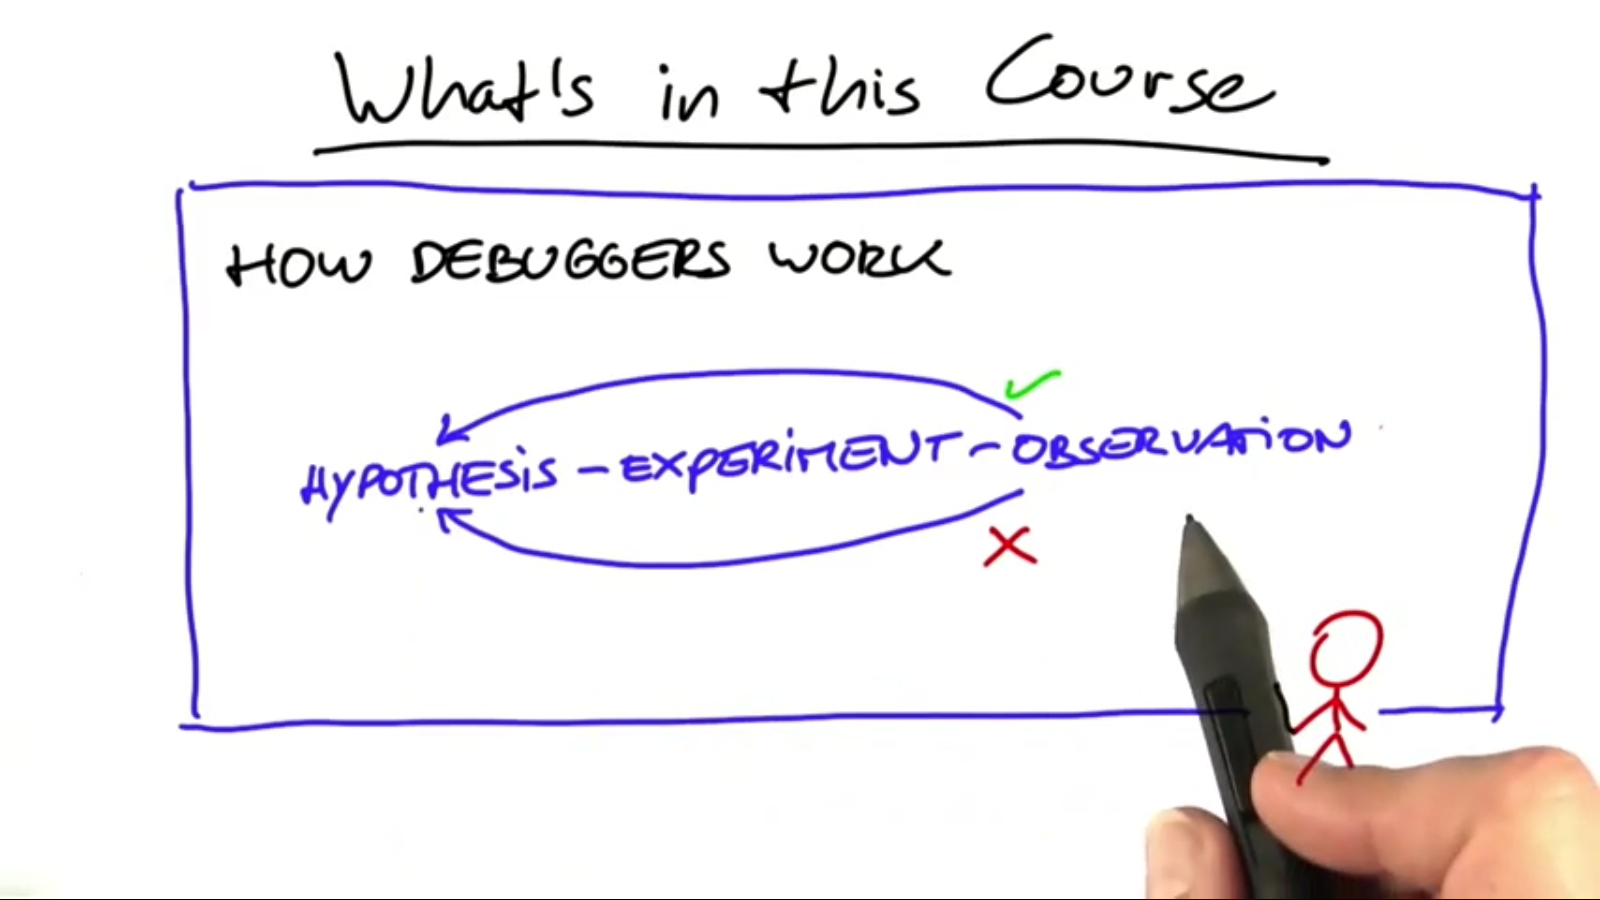 What's in this Course
HOW DEBUGGERS WORK
HYPOTHESIS - EXPERIMENT - OBSERVATION